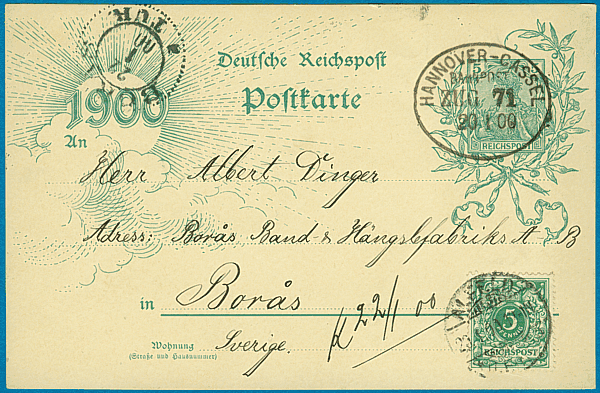 TUR
22
1
00
Deutsche Reichspost
Postkarte
1900
HANNOVER-CASSEL
BAHNPOST
ZUG 71
20 1 00
5
REICHSPOST
An
Herr Albert Dinger
Adress: Borås Band & Hängslefabriks A B
in Borås
Sverige.
22/1 00
Wohnung
(Straße und Hausnummer)
5
PFENNIG
REICHSPOST